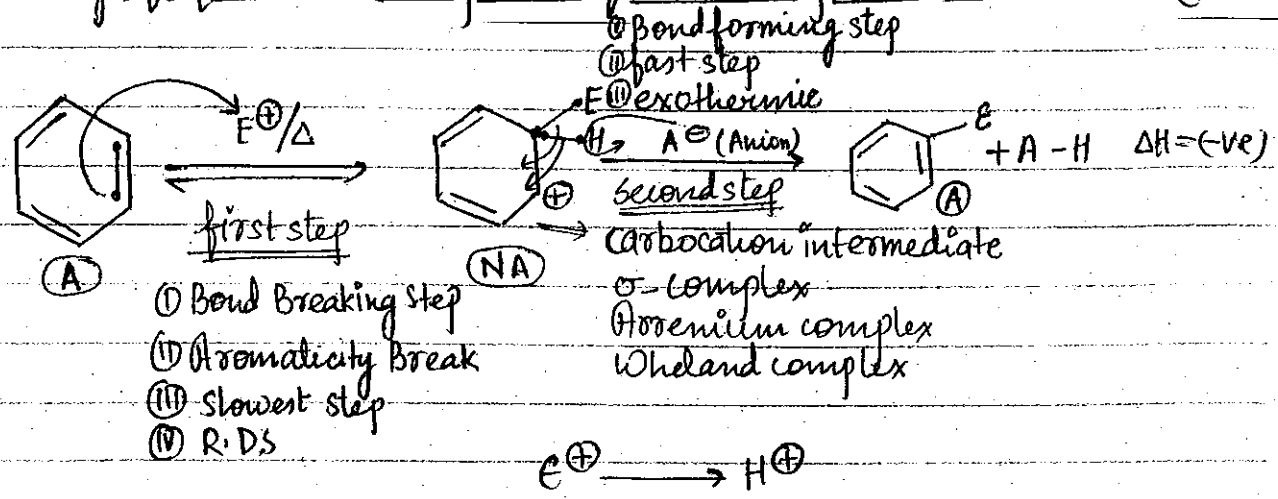 (I) Bond forming step
(II) fast step
(III) exothermic
E⊕/Δ
E
H
A⊖ (Anion)
⊕
E
+ A - H ΔH = (-ve)
first step
second step
(A)
(NA)
(A)
carbocation intermediate
σ-complex
Arrenium complex
Wheland complex
(I) Bond Breaking Step
(II) Aromaticity Break
(III) Slowest step
(IV) R.D.S
E⊕ → H⊕